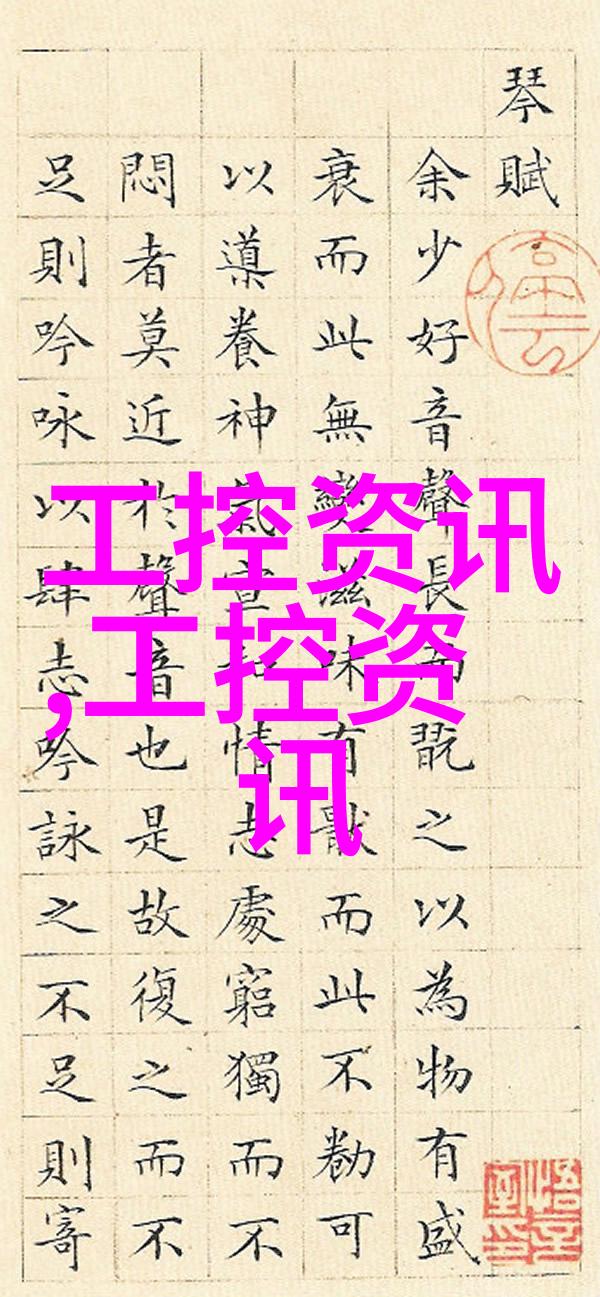 琴賦
余少好音聲長而翫之以為物有盛
衰而此無變滋味有猒而此不勌可
以導養神氣宣和情志處窮獨而不
悶者莫近於聲音也是故復之而不
足則吟咏以肆志吟詠之不足則寄
工控资讯
,工控资
讯